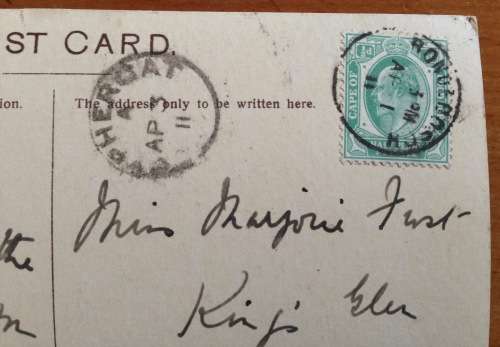 ST CARD.
ion.
The address only to be written here.
PHERGAT
A
AP 3
11
½d
CAPE OF
RONDEBOSCH
1 PM
AP 1
11
Miss Marjorie Furst
King's Glen
the